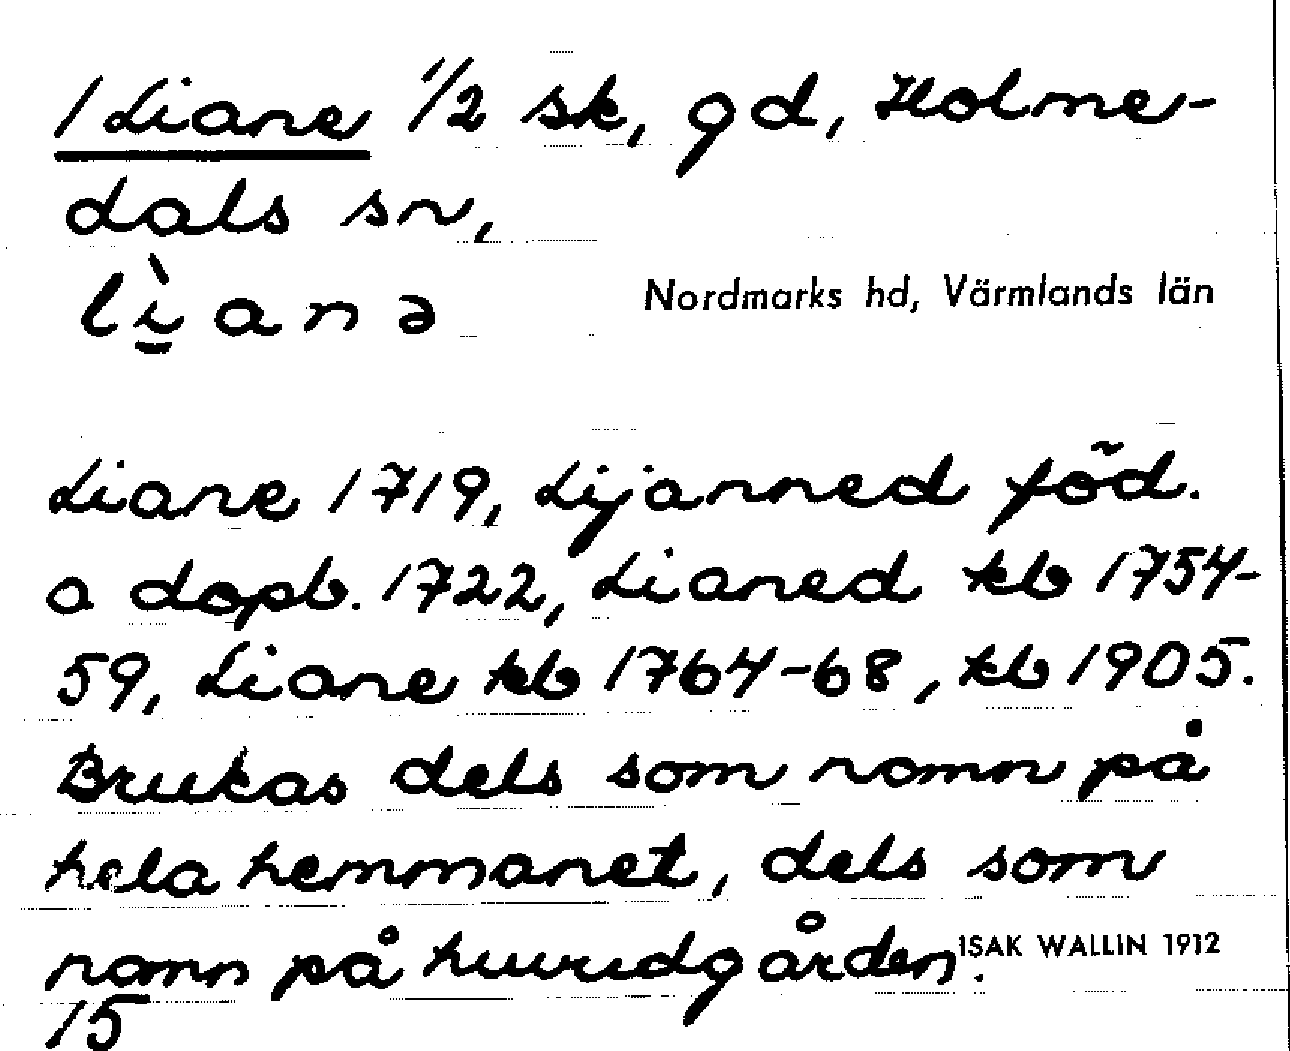 1 Liane 1/2 sk, gd, Holme-
dals sn,
lìanə
Nordmarks hd, Värmlands län
Liane 1719, Lijanned föd.
o dopb. 1722, Lianed kb 1754-
59, Liane kb 1764-68, kb 1905.
Brukas dels som namn på
hela hemmanet, dels som
namn på huvudgården.
ISAK WALLIN 1912
15